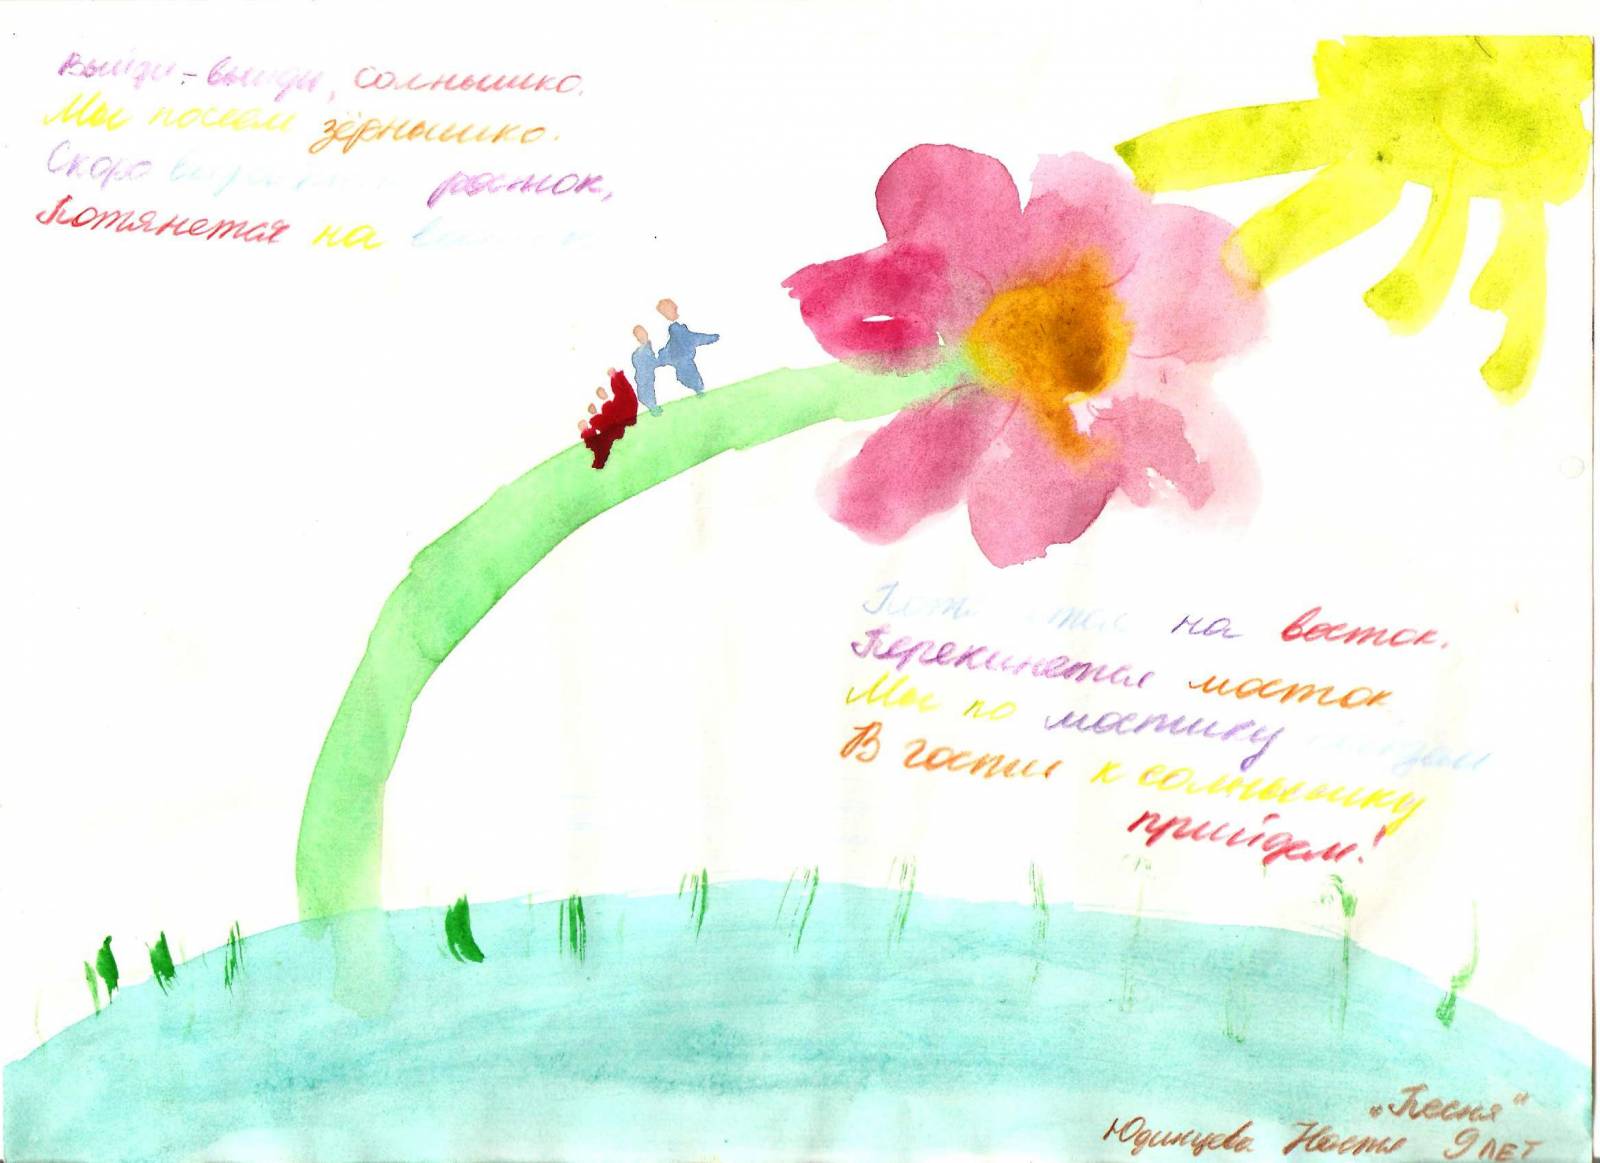 Выйди-выйди, солнышко.
Мы посеем зёрнышко.
Скоро вырастет росток,
Потянется на восток
Потянется на восток.
Перекинется мосток
Мы по мостику пойдём
В гости к солнышку
прийдем!
„Песня"
Юдинцева Настя 9 лет